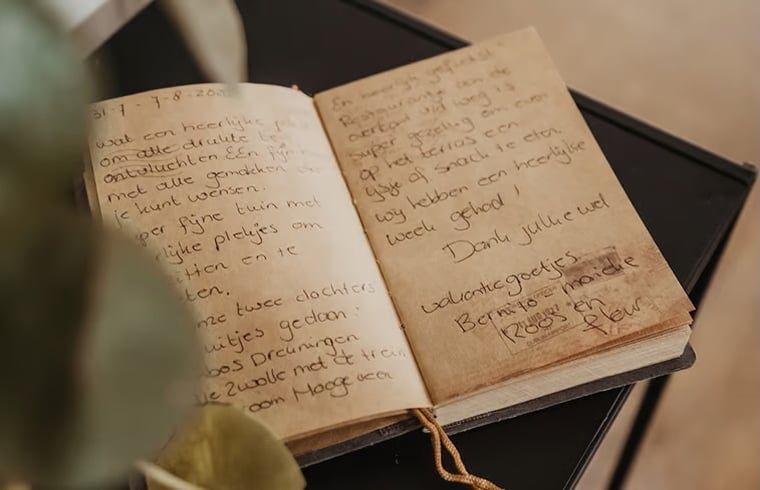 31-7 - 7-8-202
wat een heerlijke
om alle drukte te
ontvluchten. Een fijn
met alle gemakken
je kunt wensen.
per fijne tuin met
lijke plekjes om
itten en te
ten.
nze twee dochters
uitjes gedaan:
bos Dreuningen
le Zwolle met de trein
oom Hoogeveen
En heerlijk
Restaurantje aan de
overkant v/d weg is
super gezellig om even
op het terras een
ijsje of snack te eten.
wij hebben een heerlijke
week gehad!
Dank jullie wel
vakantiegroetjes
Bernito - maicke
Roos en
fleur